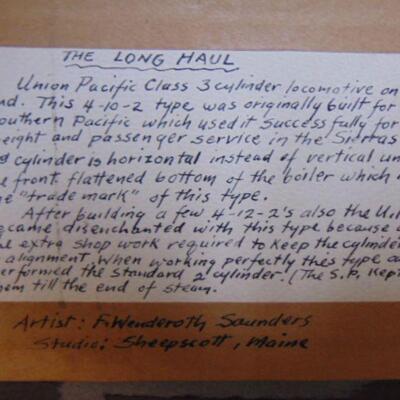 THE LONG HAUL
Union Pacific Class 3 cylinder locomotive on
nd. This 4-10-2 type was originally built for
outhern Pacific which used it successfully for
eight and passenger service in the Sierras
cylinder is horizontal instead of vertical un
e front flattened bottom of the boiler which
e "trade mark" of this type.
After building a few 4-12-2's also the U.
came disenchanted with this type because
e extra shop work required to keep the cylinder
alignment. When working perfectly this type
erformed the standard 2 cylinder. (The S.P. kept
hem till the end of steam.
Artist: F. Wenderoth Saunders
Studio: Sheepscott, Maine